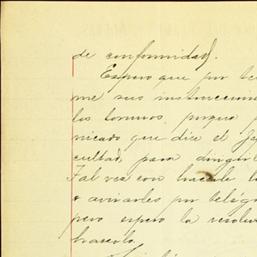 de conformidad.
Espero que por te
me sus instruccione
los torunos, porque
nicado que dice el Je
cultad para dirigir
Tal vez con hacerle
o avisarles por telég
pero espero la resolu